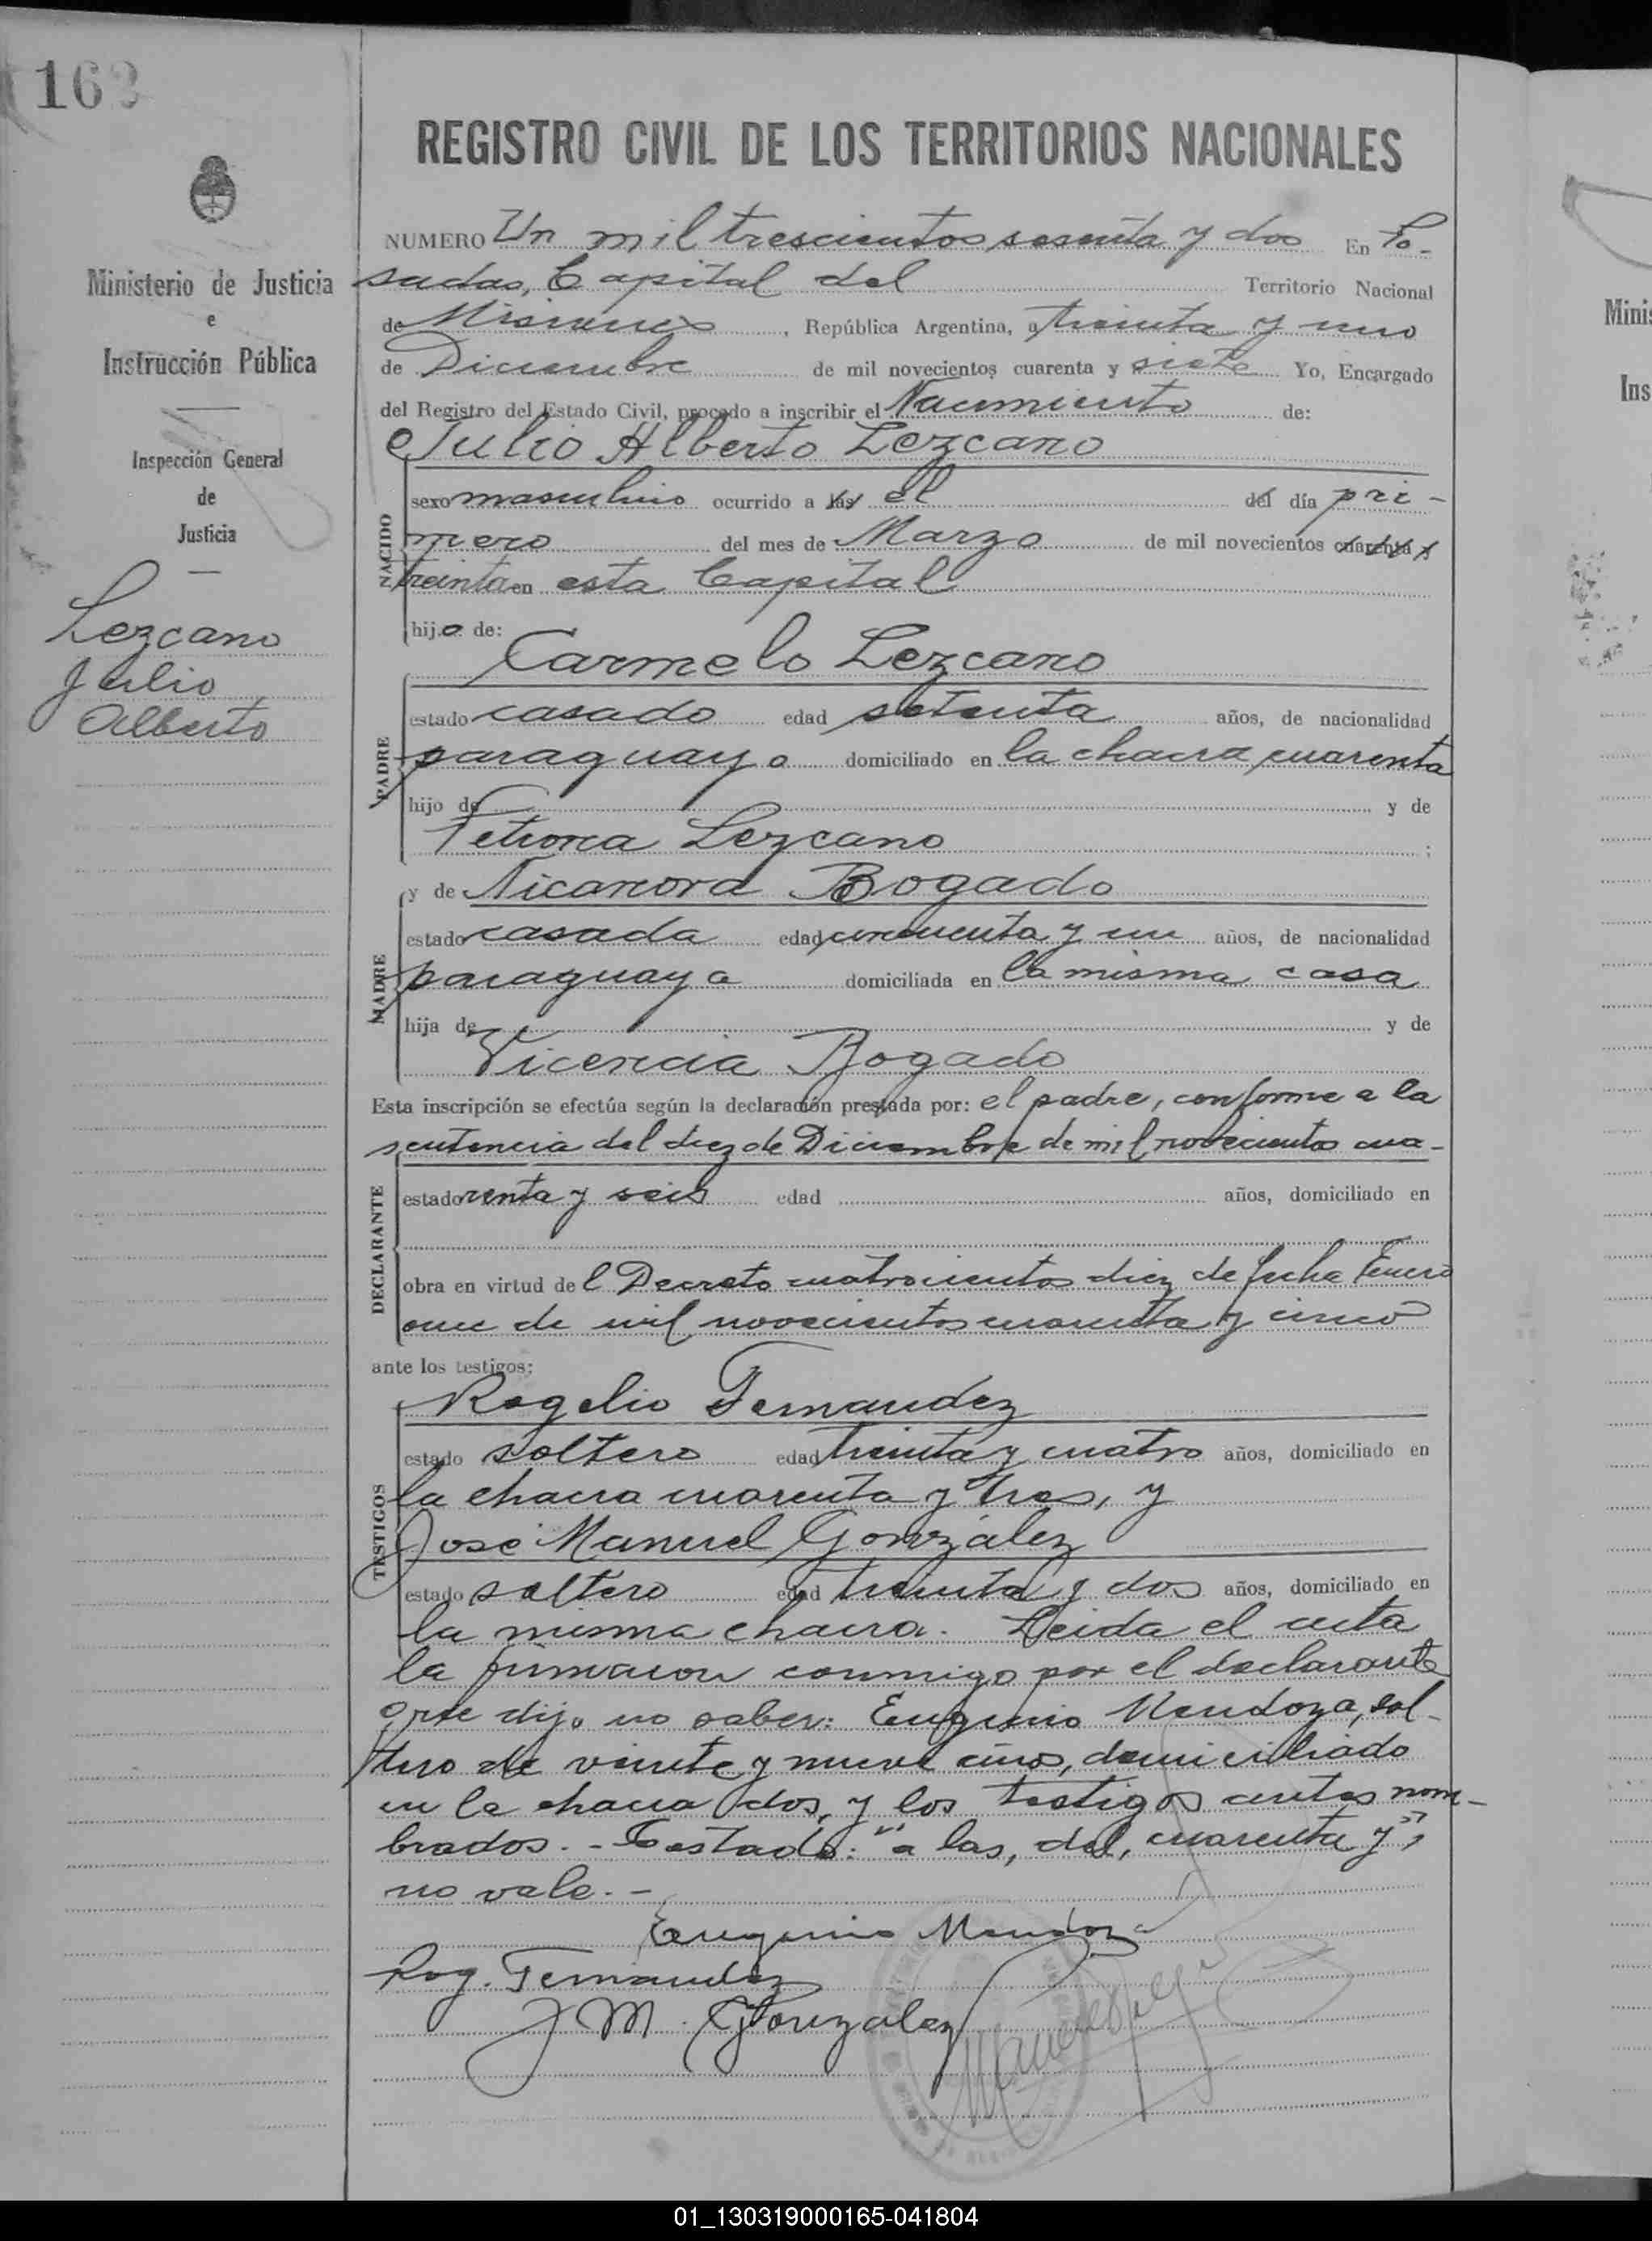 162
REGISTRO CIVIL DE LOS TERRITORIOS NACIONALES
Ministerio de Justicia
e
Instrucción Pública
Inspección General
de
Justicia
Lezcano
Julio
Alberto
NUMERO Un mil trescientos sesenta y dos En Po-
sadas, Capital del Territorio Nacional
de Misiones, República Argentina, a treinta y uno
de Diciembre de mil novecientos cuarenta y siete Yo, Encargado
del Registro del Estado Civil, procedo a inscribir el Nacimiento de:
Julio Alberto Lezcano
NACIDO
sexo masculino ocurrido a las el del día pri-
mero del mes de Marzo de mil novecientos cuarenta y
treinta en esta Capital
hijo de:
Carmelo Lezcano
PADRE
estado casado edad setenta años, de nacionalidad
paraguaya domiciliado en la chacra cuarenta
hijo de y de
Petrona Lezcano ;
y de Nicanora Bogado
MADRE
estado casada edad cincuenta y un años, de nacionalidad
paraguaya domiciliada en la misma casa
hija de y de
Vicencia Bogado
Esta inscripción se efectúa según la declaración prestada por: el padre, conforme a la
sentencia del diez de Diciembre de mil novecientos cua-
DECLARANTE
estado renta y seis edad años, domiciliado en
obra en virtud de l Decreto cuatrocientos diez de fecha Enero
once de mil novecientos cuarenta y cinco
ante los testigos:
Rogelio Fernandez
TESTIGOS
estado soltero edad treinta y cuatro años, domiciliado en
la chacra cuarenta y tres, y
José Manuel González
estado soltero edad treinta y dos años, domiciliado en
la misma chacra. Leida el acta
la firmaron conmigo por el declarante
que dijo no saber: Eugenio Mendoza, sol-
tero de veinte y nueve años, domiciliado
en la chacra dos, y los testigos antes nom-
brados. - Testado: "a las, del, cuarenta y",
no vale. -
Eugenio Mendoza
Rog. Fernandez
J M. Gonzalez
01_130319000165-041804